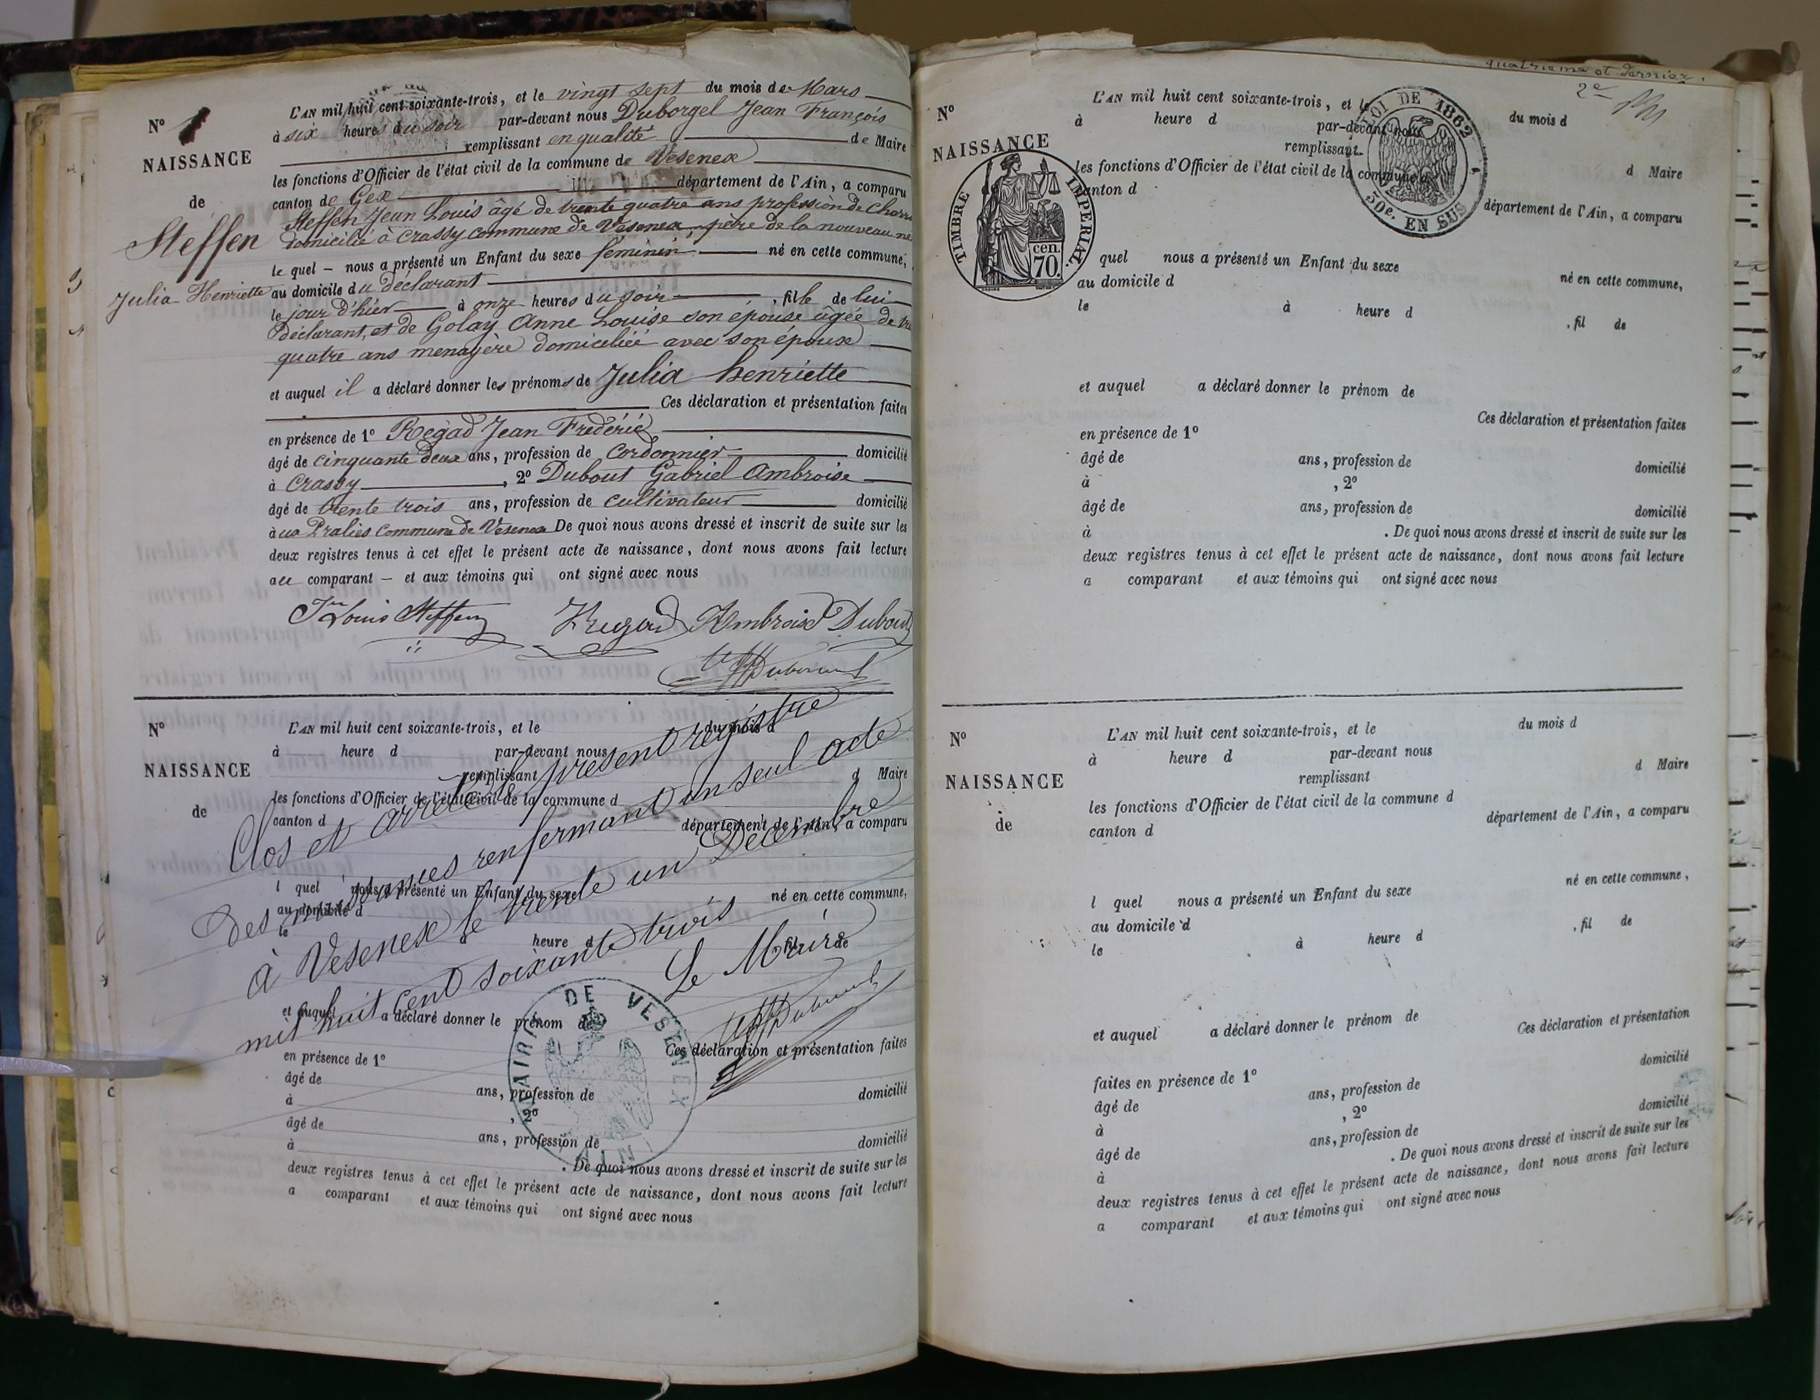 N° 1
NAISSANCE
de
Steffen
Julia Henriette
L'AN mil huit cent soixante-trois, et le vingt sept du mois de Mars
à six heures du soir par-devant nous Duborgel Jean François
remplissant en qualité de Maire
les fonctions d'Officier de l'état civil de la commune de Vesenex
canton de Gex département de l'Ain, a comparu
Steffen Jean Louis âgé de trente quatre ans profession de
domicilié à Crassy commune de Vesenex, père de la nouveau né
le quel nous a présenté un Enfant du sexe féminin né en cette commune,
au domicile du déclarant
le jour d'hier à onze heures du soir, fille de lui
Déclarant, et de Golay Anne Louise son épouse agée de
quatre ans menagère domiciliée avec son époux
et auquel il a déclaré donner les prénoms de Julia henriette
Ces déclaration et présentation faites
en présence de 1° Regad Jean Frédéric
âgé de cinquante deux ans, profession de Cordonnier domicilié
à Crassy, 2° Dubout Gabriel Ambroise
âgé de trente trois ans, profession de cultivateur domicilié
à aux Pralies Commune de Vesenex De quoi nous avons dressé et inscrit de suite sur les
deux registres tenus à cet effet le présent acte de naissance, dont nous avons fait lecture
au comparant – et aux témoins qui ont signé avec nous
Jn Louis Steffen Regad Ambroise Dubout
N°
NAISSANCE
de
L'AN mil huit cent soixante-trois, et le du mois d
à heure d par-devant nous
remplissant
d Maire
les fonctions d'Officier de l'état civil de la commune d
canton d
département de l'Ain, a comparu
l quel nous a présenté un Enfant du sexe né en cette commune,
au domicile d
le à heure d , fil de
et auquel a déclaré donner le prénom de
Ces déclaration et présentation faites
en présence de 1°
âgé de ans, profession de domicilié
à , 2°
âgé de ans, profession de domicilié
à . De quoi nous avons dressé et inscrit de suite sur les
deux registres tenus à cet effet le présent acte de naissance, dont nous avons fait lecture
a comparant et aux témoins qui ont signé avec nous
Clos et arrêté le présent registre
des naissances renfermant un seul acte
à Vesenex le trente un Décembre
mil huit cent soixante trois
Le Maire
MAIRIE DE VESENEX
AIN
quatrieme et dernier.
2e
N°
NAISSANCE
TIMBRE IMPERIAL
70 cen.
LOI DE 1862
50e. EN SUS
L'AN mil huit cent soixante-trois, et le du mois d
à heure d par-devant nous
remplissant
d Maire
les fonctions d'Officier de l'état civil de la commune d
canton d
département de l'Ain, a comparu
quel nous a présenté un Enfant du sexe né en cette commune,
au domicile d
le à heure d , fil de
et auquel a déclaré donner le prénom de
Ces déclaration et présentation faites
en présence de 1°
âgé de ans, profession de domicilié
à , 2°
âgé de ans, profession de domicilié
à . De quoi nous avons dressé et inscrit de suite sur les
deux registres tenus à cet effet le présent acte de naissance, dont nous avons fait lecture
a comparant et aux témoins qui ont signé avec nous
N°
NAISSANCE
de
L'AN mil huit cent soixante-trois, et le du mois d
à heure d par-devant nous
remplissant
d Maire
les fonctions d'Officier de l'état civil de la commune d
canton d
département de l'Ain, a comparu
l quel nous a présenté un Enfant du sexe né en cette commune,
au domicile d
le à heure d , fil de
et auquel a déclaré donner le prénom de
Ces déclaration et présentation
faites en présence de 1° domicilié
âgé de ans, profession de
à , 2°
âgé de ans, profession de domicilié
à . De quoi nous avons dressé et inscrit de suite sur les
deux registres tenus à cet effet le présent acte de naissance, dont nous avons fait lecture
a comparant et aux témoins qui ont signé avec nous